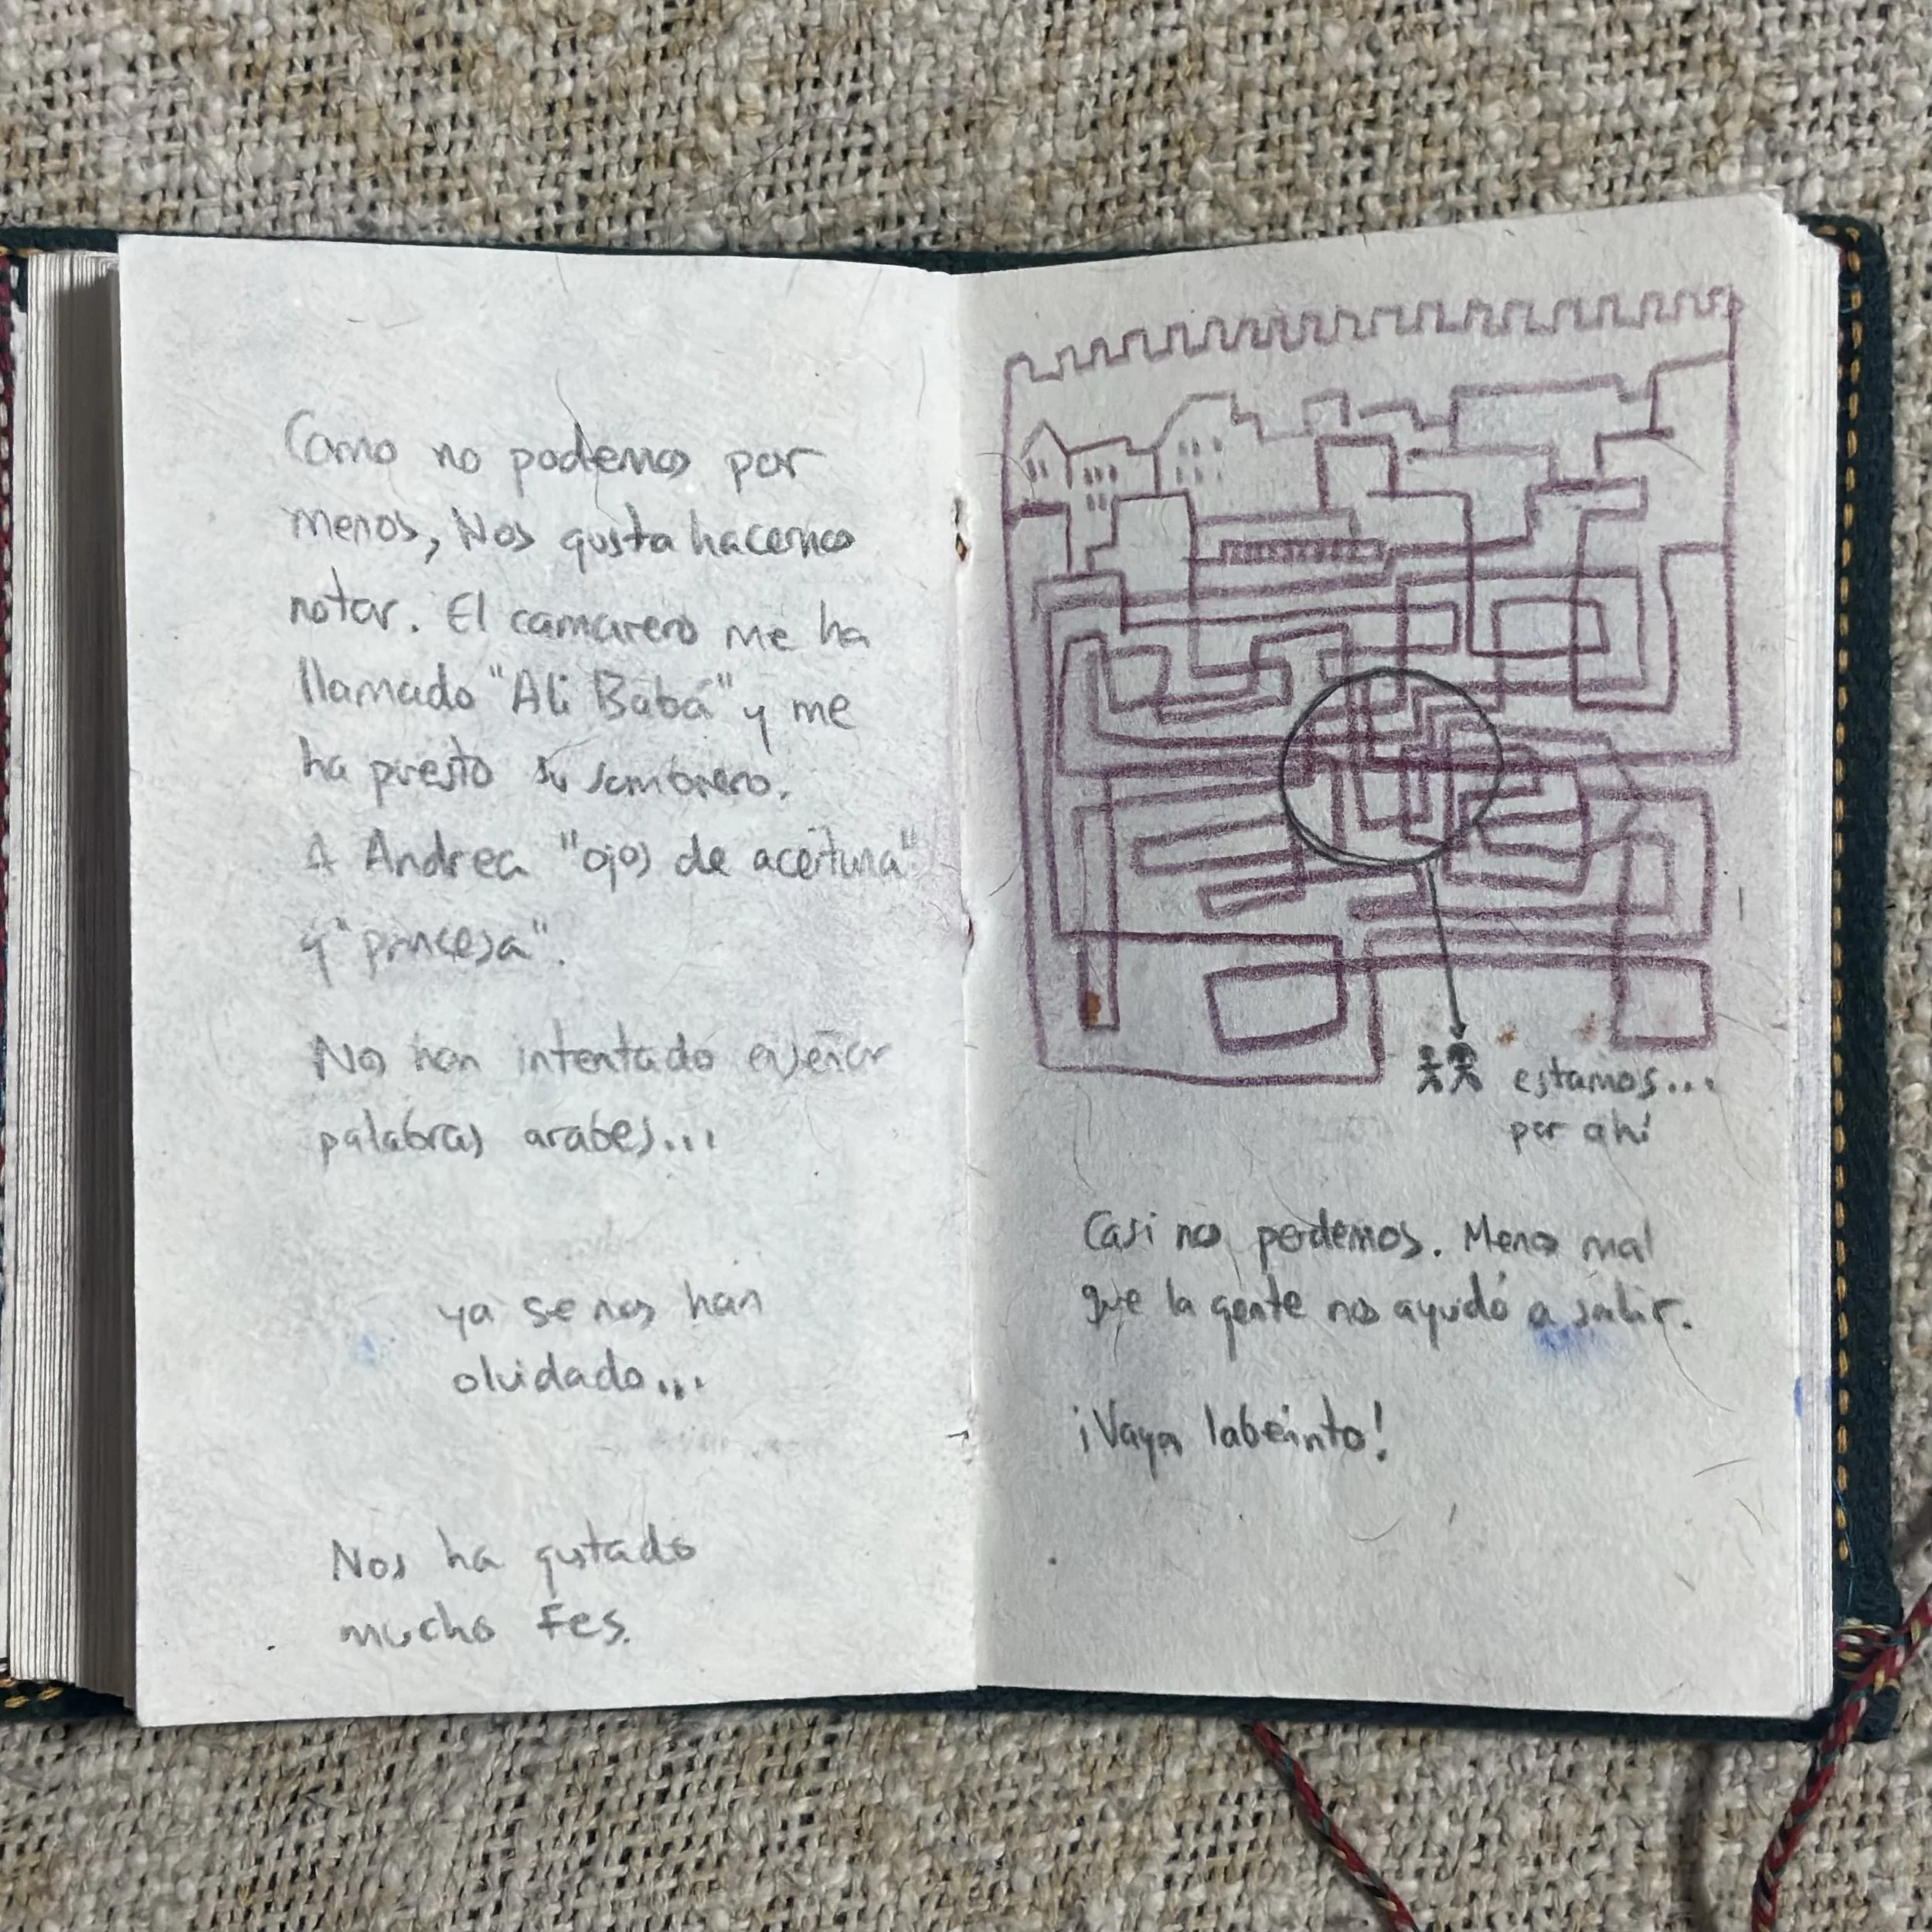 Como no podemos por
menos, Nos gusta hacernos
notar. El camarero me ha
llamado "Ali Babá" y me
ha puesto su sombrero.
A Andrea "ojos de aceituna"
y "princesa".
Nos han intentado enseñar
palabras arabes...
ya se nos han
olvidado...
Nos ha gustado
mucho Fes.
estamos...
por ahí
Casi nos perdemos. Menos mal
que la gente nos ayudó a salir.
¡Vaya laberinto!